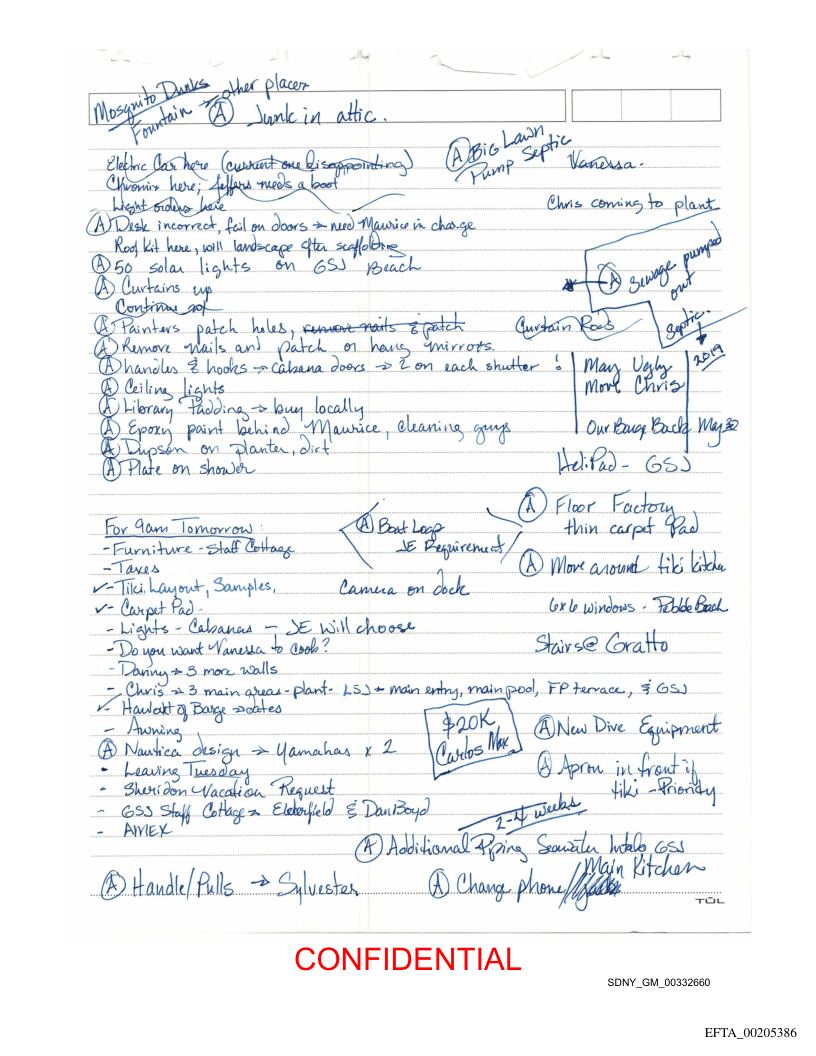 Mosquito Dunks
Fountain → other places
(A) Junk in attic.
(A) Big Lawn
Pump Septic
Vanessa.
Electric Car here (current one disappointing)
here; needs a boot
Light orders here
Chris coming to plant
(A) Desk incorrect, fail on doors → need Maurice in charge
Roof Kit here, will landscape after scaffolding
(A) 50 solar lights on GSJ Beach
(A) Sewage pumped
out
(A) Curtains up
Continue
(A) Painters patch holes, remove nails & patch
Curtain Rods
Septic.
2019
(A) Remove Nails and patch or hang mirrors.
(A) handles & hooks → cabana doors → 2 on each shutter!
May Ugly
More Chris
(A) Ceiling lights
(A) Library Padding → buy locally
(A) Epoxy paint behind Maurice, cleaning guys
Our Barge Back May 30
(A) on planter, dirt
(A) Plate on shower
HeliPad - GSJ
For 9am Tomorrow:
(A) Boat Loop
JE Requirement
(A) Floor Factory
thin carpet Pad
- Furniture - Staff Cottage
- Taxes
(A) Move around tiki kitchen
✓- Tiki Layout, Samples,
Camera on dock
✓- Carpet Pad -
6x6 windows - Pebble Beach
- Lights - Cabanas - JE will choose
- Do you want Vanessa to cook?
Stairs @ Gratto
- Danny → 3 more walls
- Chris → 3 main areas - plant - LSJ → main entry, main pool, FP terrace, & GSJ
✓ Haulout of Barge → dates
- Awning
$20K
Carlos Max
(A) New Dive Equipment
(A) Nautica design → Yamahas x 2
- Leaving Tuesday
(A) Apron in front if
tiki - Priority
- Sheridon Vacation Request
- GSJ Staff Cottage → & Dan Boyd
2-4 weeks
- AMEX
(A) Additional Piping Seawater Intake GSJ
(A) Handle/Pulls → Sylvester
(A) Change phone / Main Kitchen
TUL
CONFIDENTIAL
SDNY_GM_00332660
EFTA_00205386